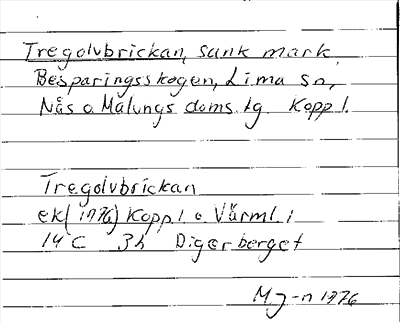 Tregolvbrickan, sank mark,
Besparingsskogen, Lima sn,
Nås o. Malungs doms. lg. Kopp l.
Tregolvbrickan
ek (1976) Kopp l. o. Värml. l
14 C 3h Digerberget
MJ-n 1976